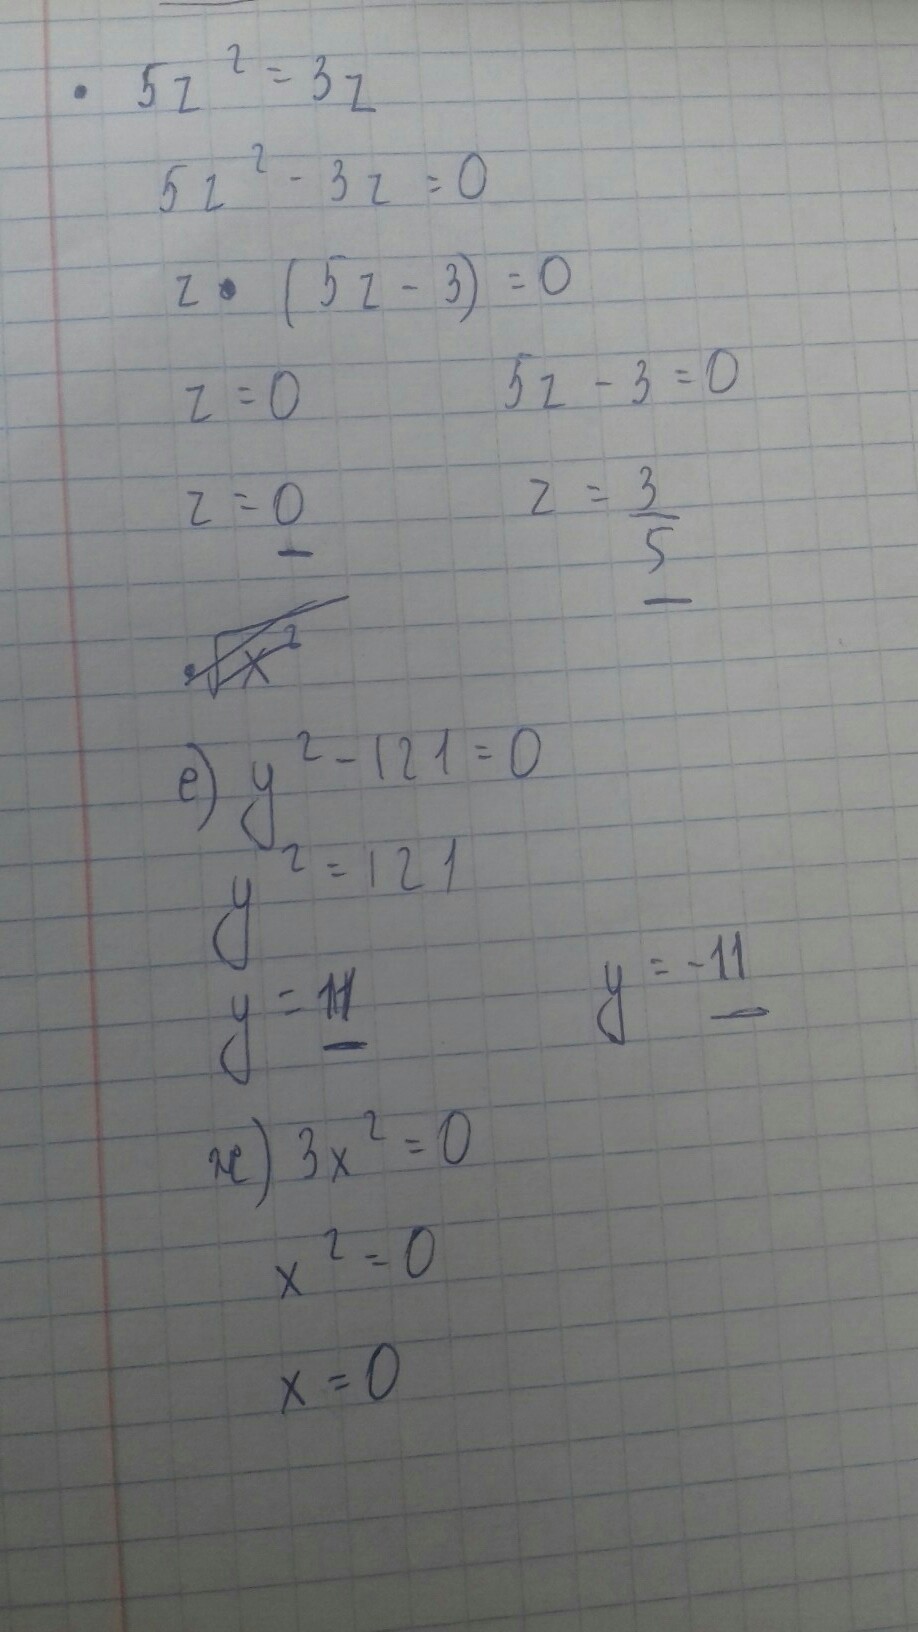 • 5z² = 3z
5z² - 3z = 0
z • (5z - 3) = 0
z = 0 5z - 3 = 0
z = 0 z = 3/5
• √x²
е) y² - 121 = 0
y² = 121
y = 11 y = -11
ж) 3x² = 0
x² = 0
x = 0